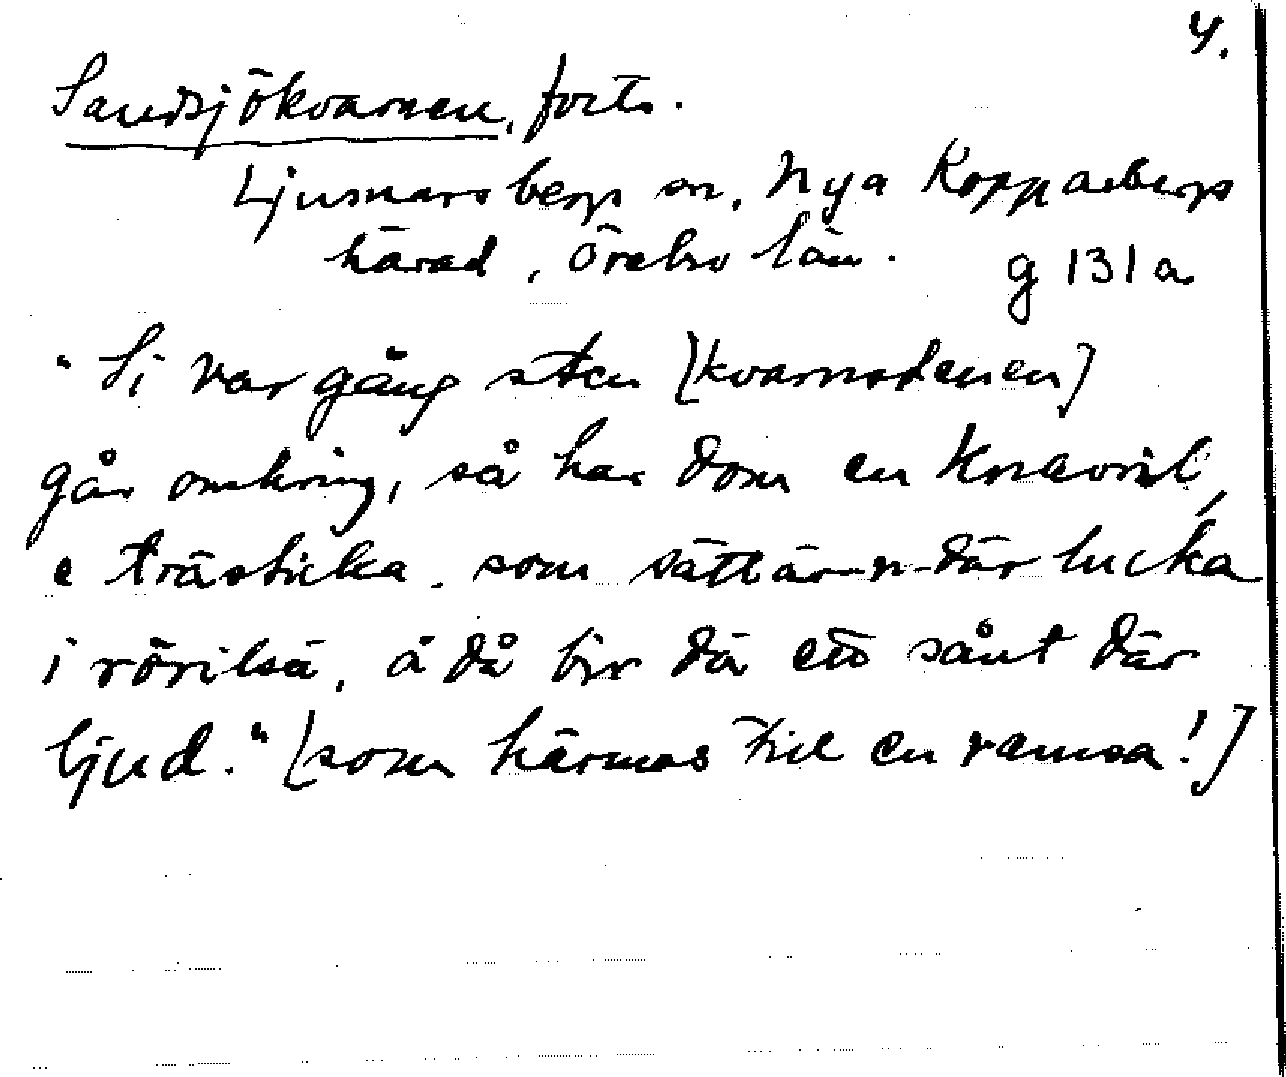 4.
Sandsjökvarnen, forts.
Ljusnarsbergs sn, Nya Kopparbergs
härad, Örebro län. g 131 a
"Si var gång sten [kvarnstenen]
går omkring, så har dom en
e trästicka, som sättär-n-där lucka
i rörilsä, å då bir dä ett sånt där
ljud." [som härmas till en ramsa!]